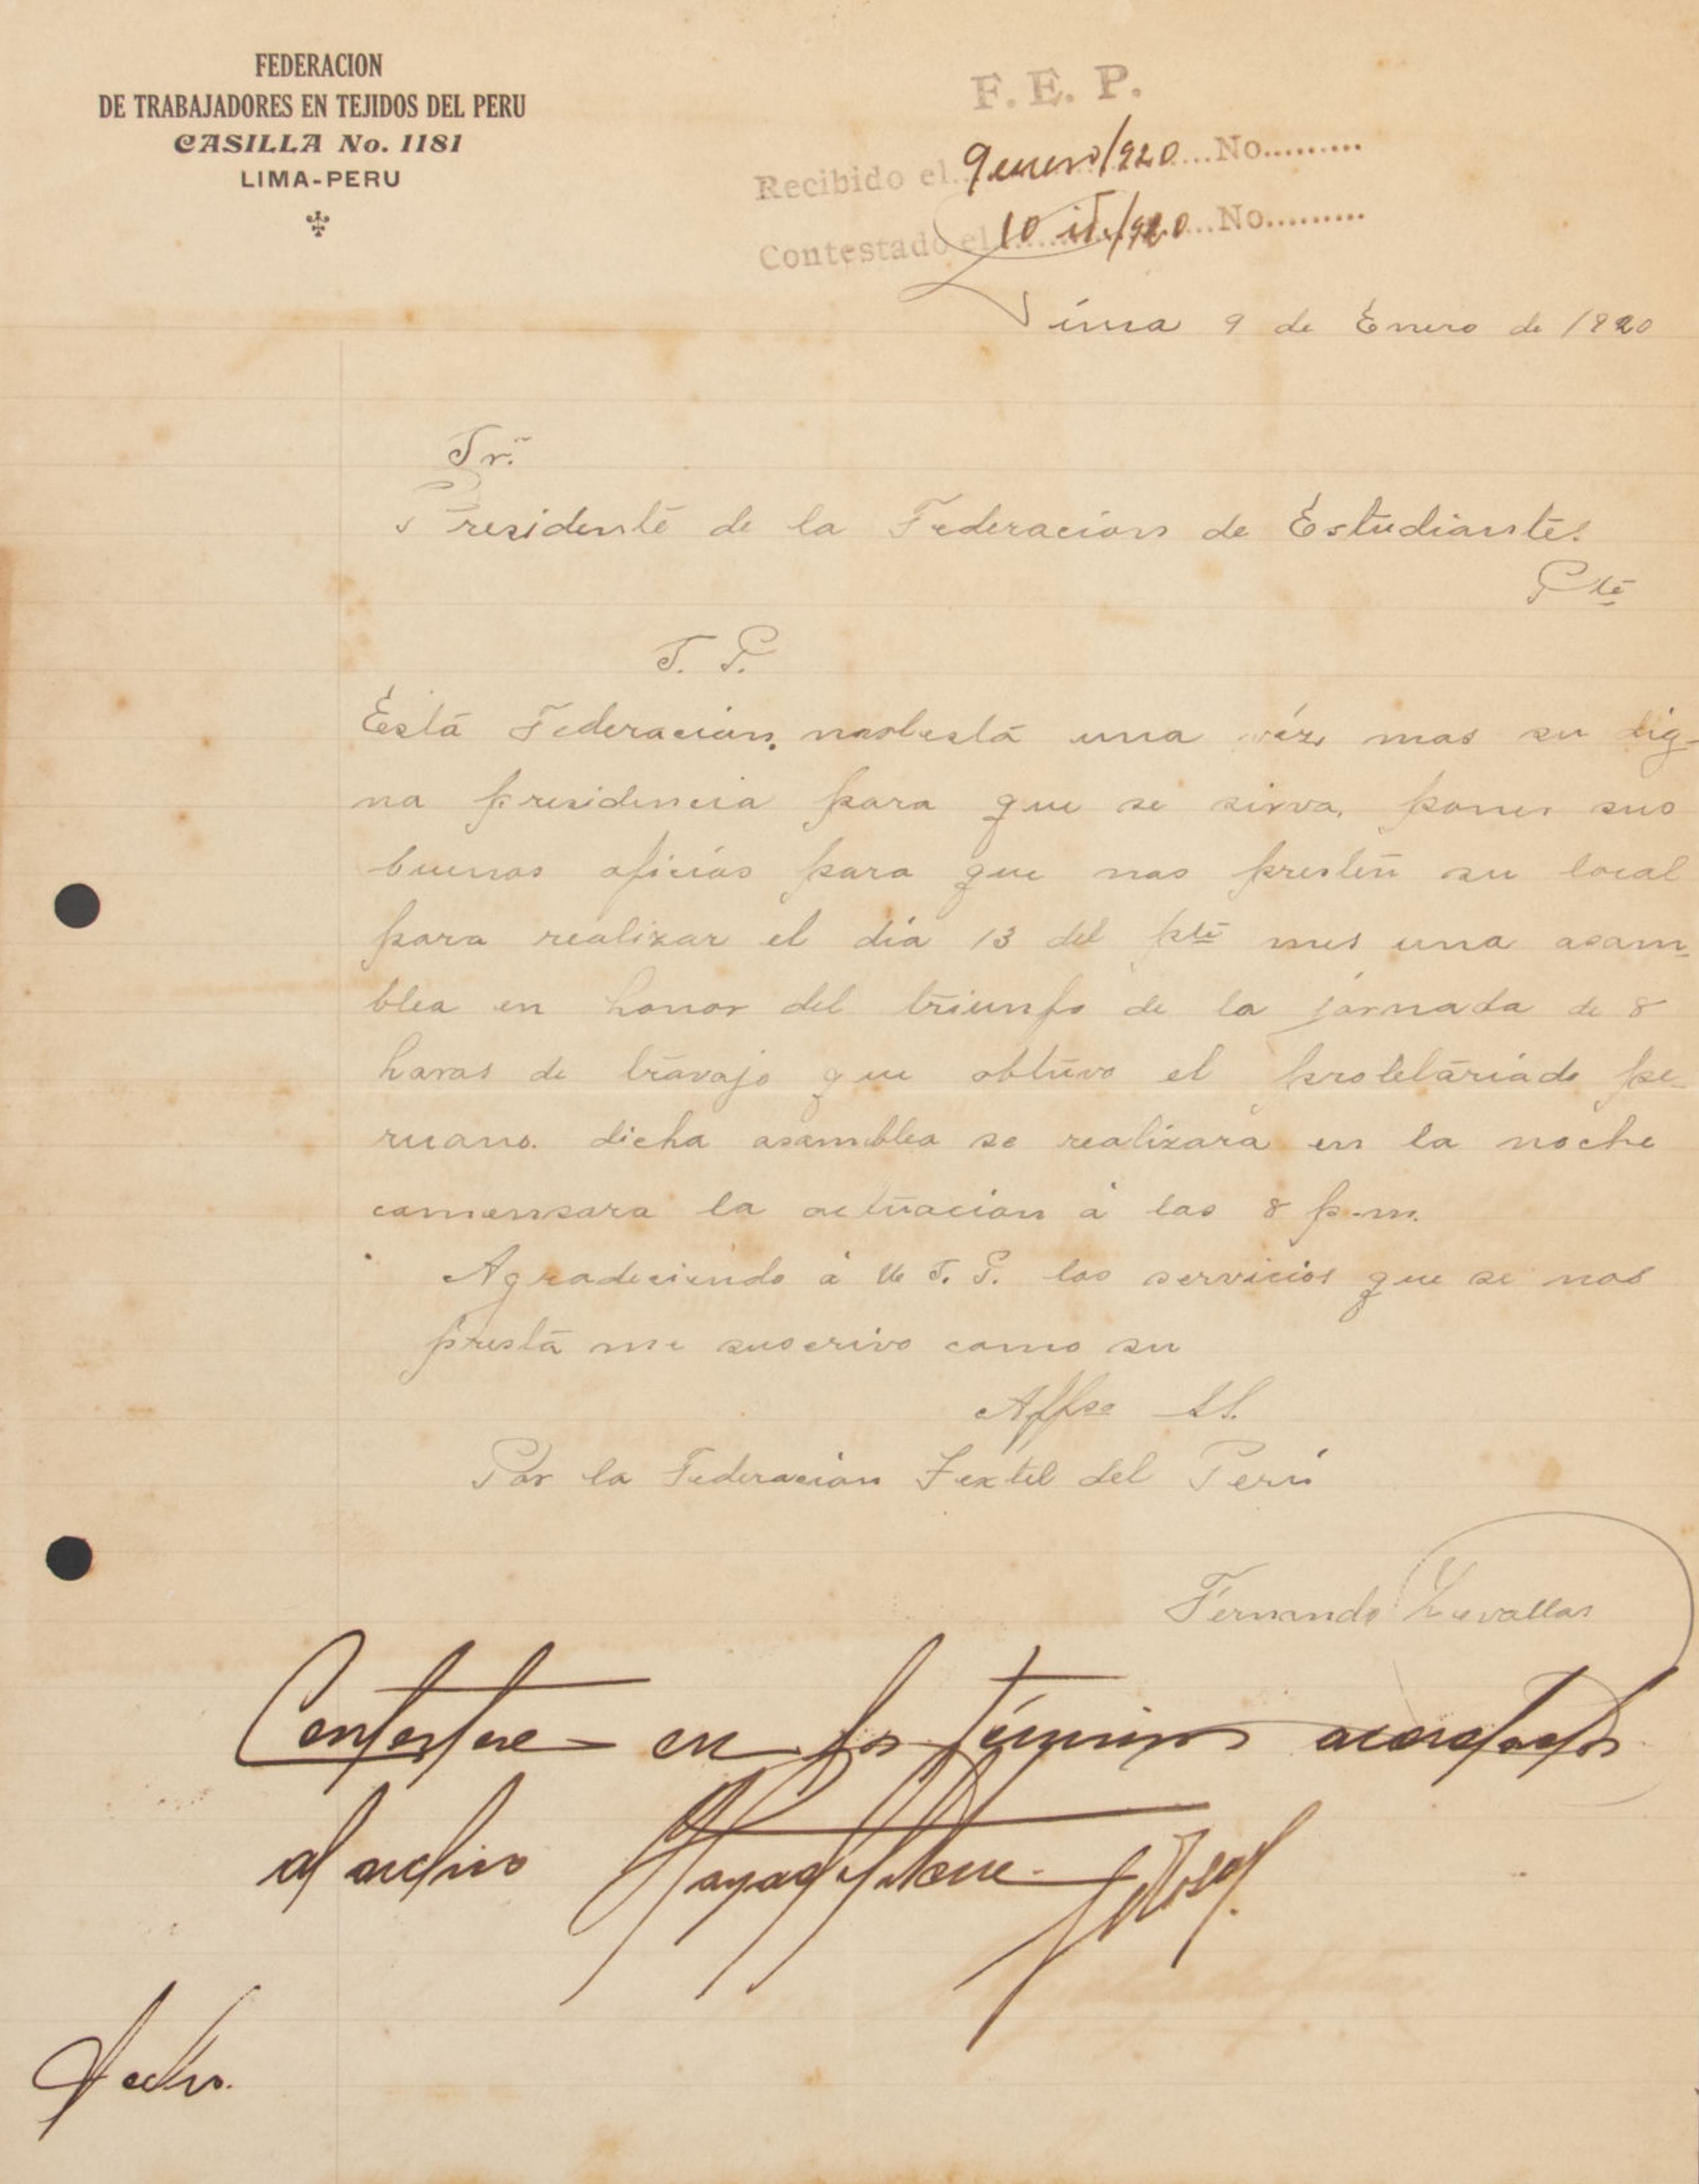 FEDERACION
DE TRABAJADORES EN TEJIDOS DEL PERU
CASILLA No. 1181
LIMA-PERU
F. E. P.
Recibido el 9 enero/920 No.........
Contestado el 10 id/920 No.........
Lima 9 de Enero de 1920
Sr.
Presidente de la Federacion de Estudiantes
Pte
S. P.
Está Federacion, molestá una véz mas su dig-
na presidencia para que se sirva, poner sus
buenos oficios para que nos presten su local
para realizar el dia 13 del pte mes una asam-
blea en honor del triunfo de la jornada de 8
horas de travajo que obtuvo el proteláriado pe-
ruano. dicha asamblea se realizara en la noche
comensara la actuacion á las 8 p.m.
Agradeciendo á U S. P. los servicios que se nos
presta me suscrivo como su
Affmo SS.
Por la Federacion Textil del Perú
Fernando
Contéstese en los términos acordados
al archivo Haya de la Torre.